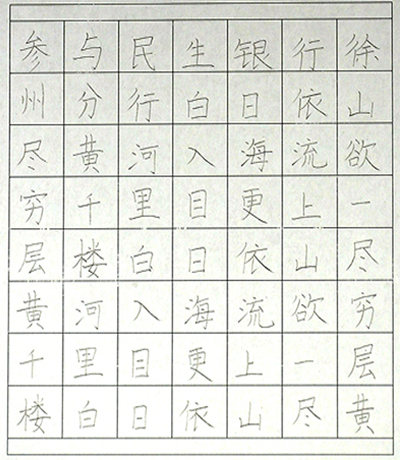 参与民生银行徐
州分行白日依山
尽黄河入海流欲
穷千里目更上一
层楼白日依山尽
黄河入海流欲穷
千里目更上一层
楼白日依山尽黄